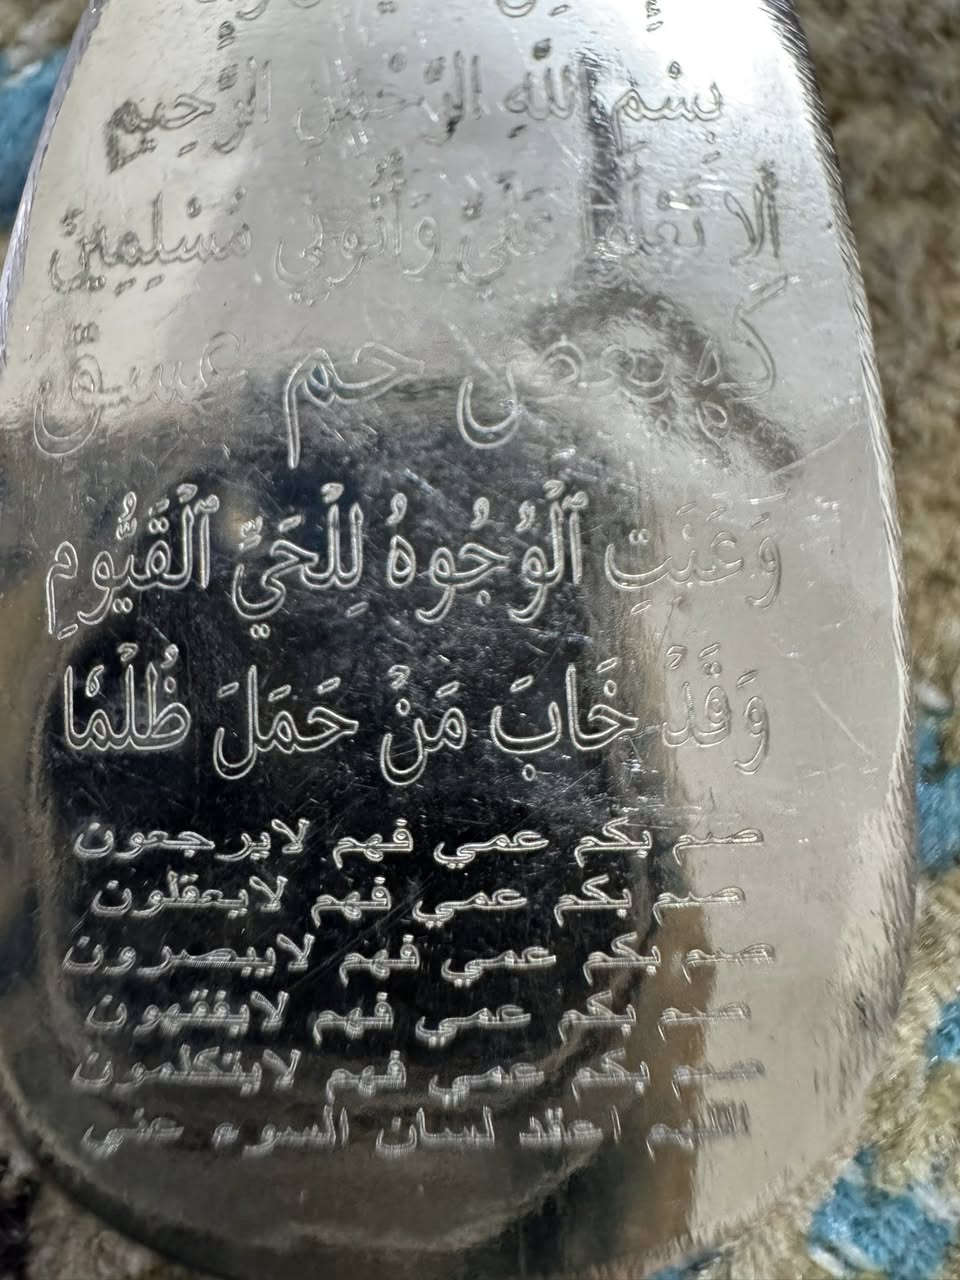 بِسْمِ اللَّهِ الرَّحْمَٰنِ الرَّحِيمِ
أَلَّا تَعْلُوا عَلَيَّ وَأْتُونِي مُسْلِمِينَ
كهيعص حم عسق
وَعَنَتِ ٱلْوُجُوهُ لِلْحَيِّ ٱلْقَيُّومِ
وَقَدْ خَابَ مَنْ حَمَلَ ظُلْمًا
صم بكم عمي فهم لايرجعون
صم بكم عمي فهم لايعقلون
صم بكم عمي فهم لايبصرون
صم بكم عمي فهم لايفقهون
صم بكم عمي فهم لايتكلمون
اللهم اعقد لسان السوء عني